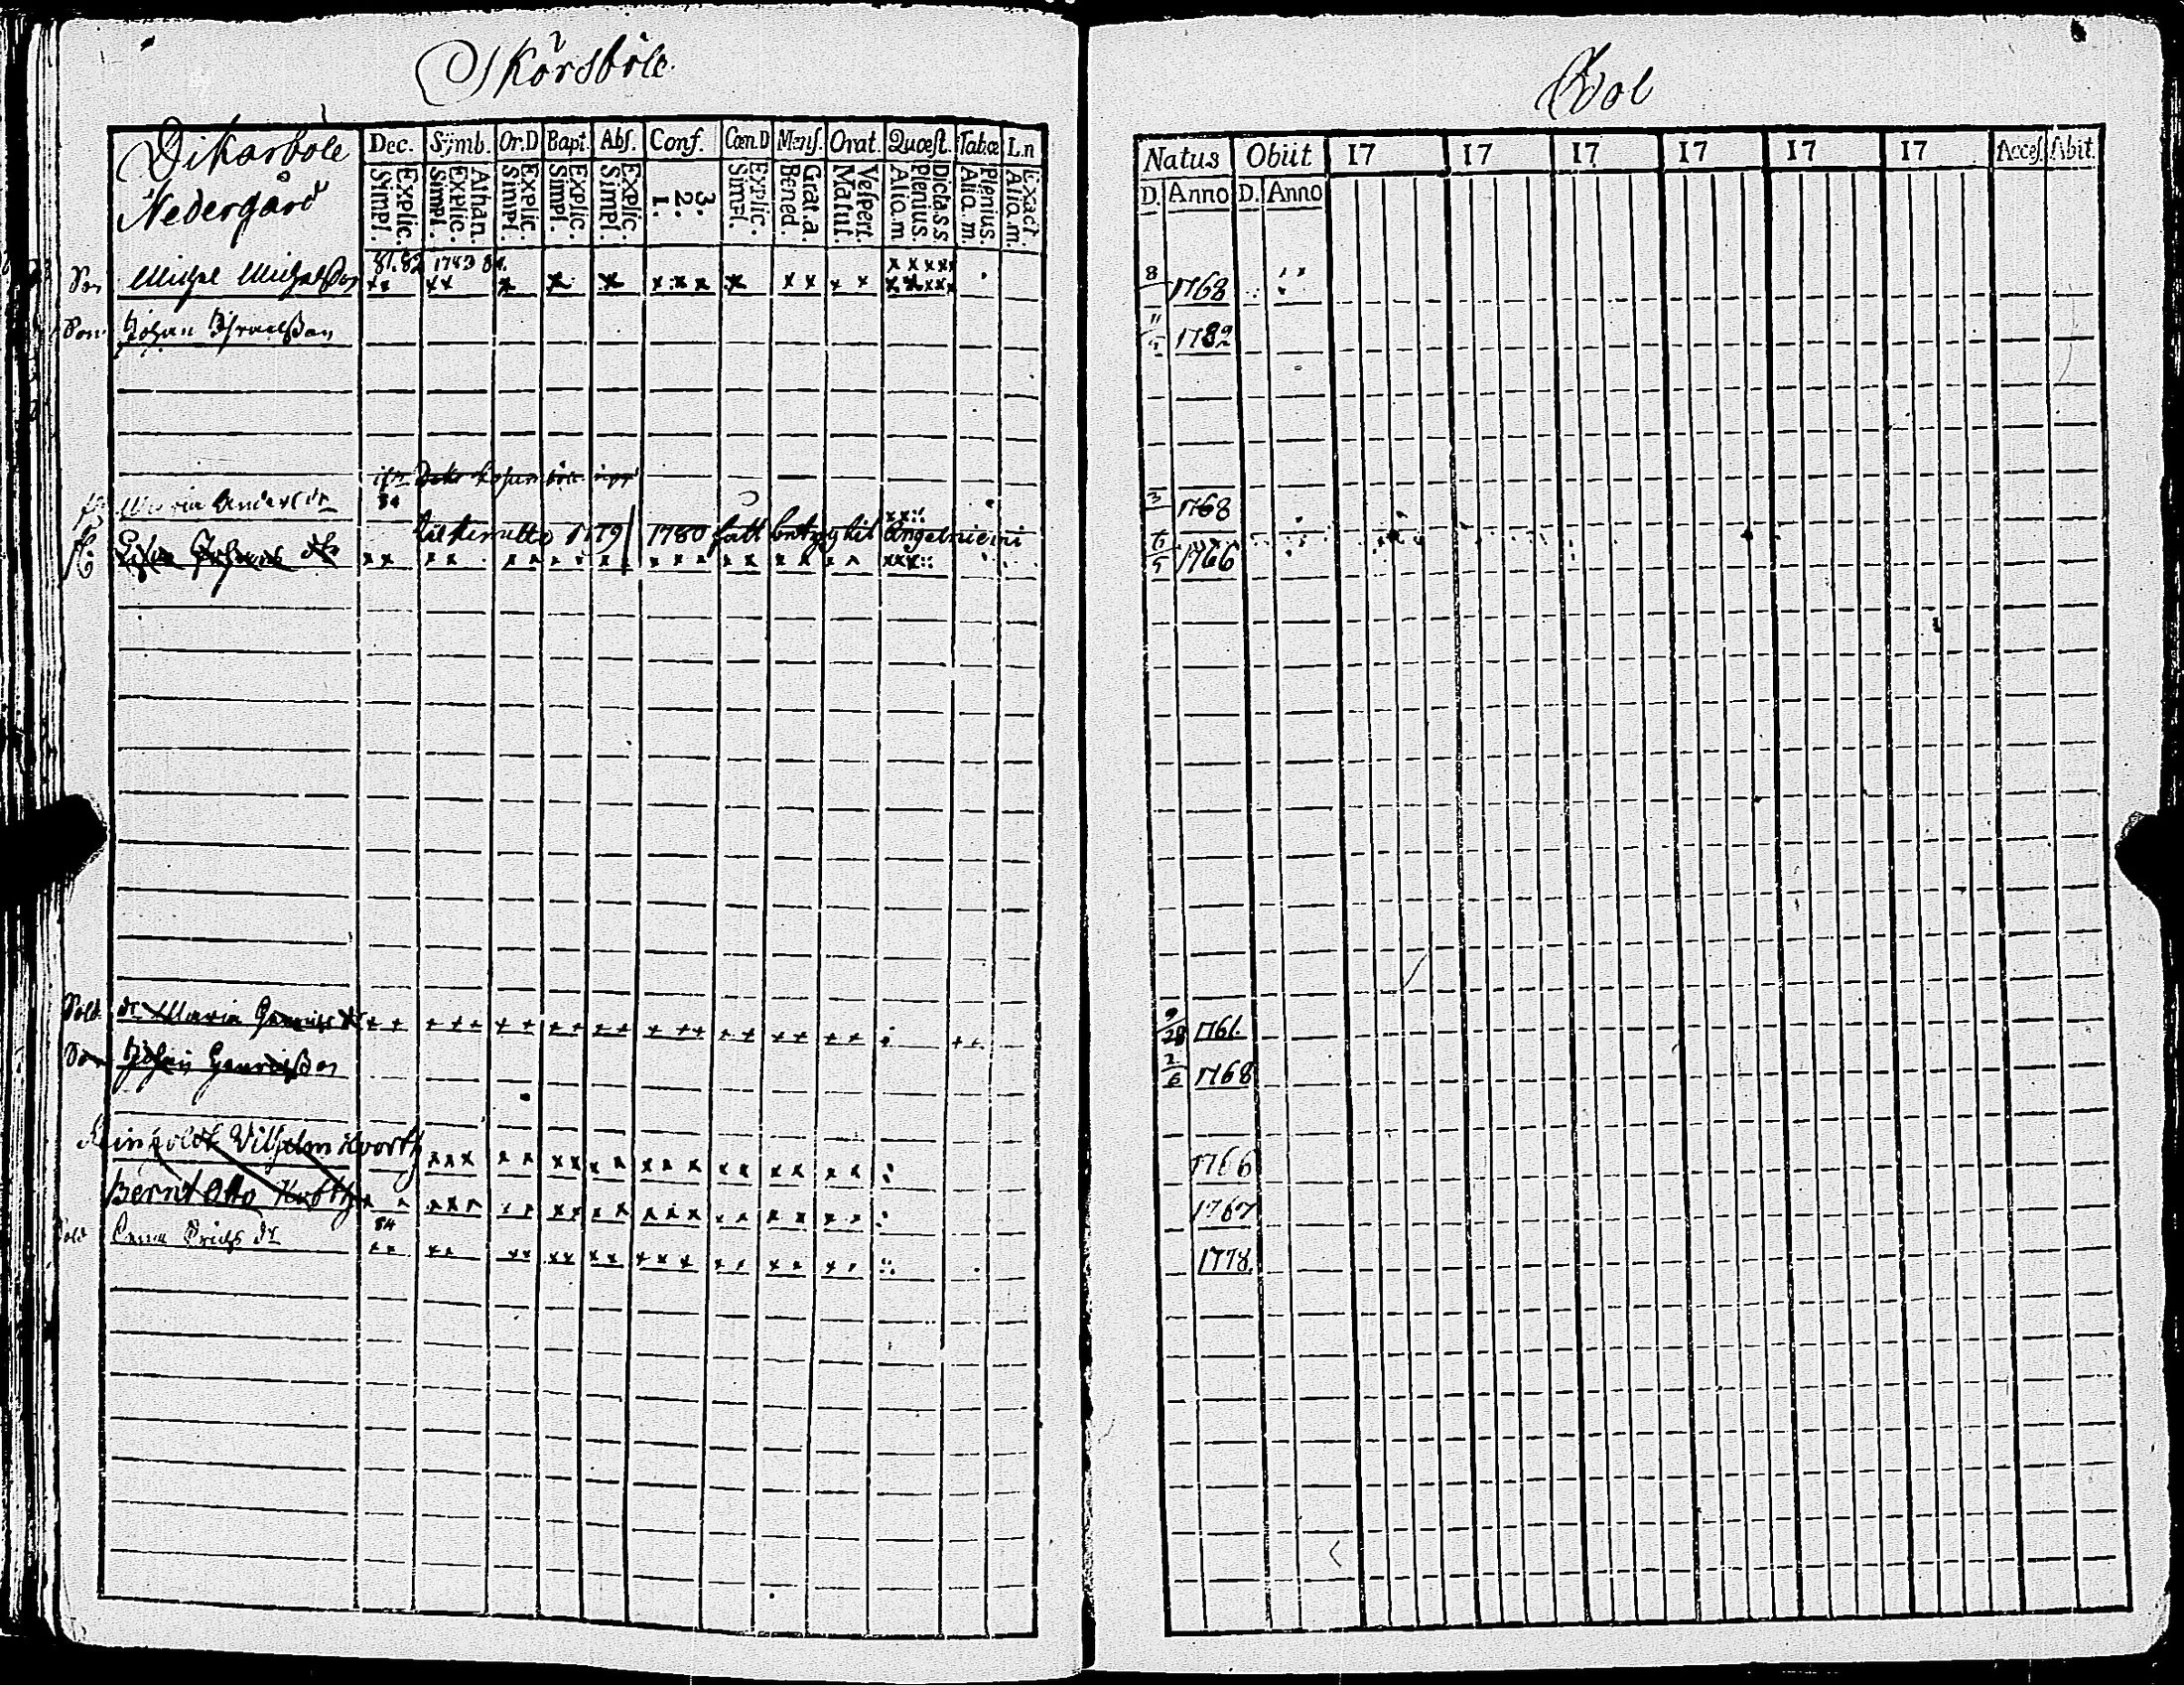 Skörsböle
Bol
Dikarböle
Nedergård
Dec. Symb. Or.D Bapt. Abs. Conf. Cœn.D Mens. Orat. Quæst. Tabœ L.n
Explic. Simpl. Athan. Explic. Simpl. Explic. Simpl. Explic. Simpl. Explic. Simpl. 3. 2. 1. Explic. Simpl. Grat.a. Bened. Vespert. Matut. Dicta.s.s Plenius. Alio.m Plenius. Alio.m. Exact. Alio.m.
Natus Obiit 17 17 17 17 17 17 Acces. Abit.
D. Anno D. Anno
81. 82 1783 84.
Son Michel Michelsson x x x x x x x x x x x x x x 8 1768
Son Johan Israelsson 11 1782
Maria Anders dr 84 3 1768
1779 1780 fått betyg tilÄngelniemi
Johans dr x x x x x x x x x x x x x x x x x x x 6/5 1766
dr Maria x x x x x x x x x x x x x x x x x x x x 9/28 1761.
Son Johan Henricsson 2/6 1768
Reinholdt Vilhelm x x x x x x x x x x x x x x x x x x 1766
Bernt Otto x x x x x x x x x x x x x x x x x x 1767
84
Erichs dr x x x x x x x x x x x x x x x x x x x 1778.